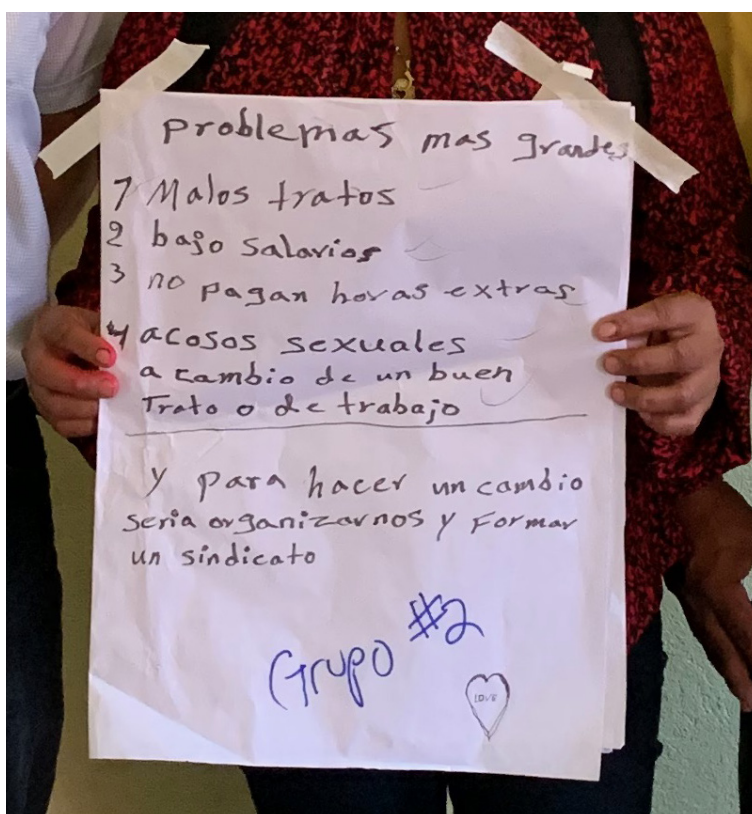 problemas mas grandes
1 Malos tratos
2 bajo salarios
3 no pagan horas extras
4 acosos sexuales
a cambio de un buen
Trato o de trabajo
y para hacer un cambio
seria organizarnos y Formar
un sindicato
Grupo #2
LOVE